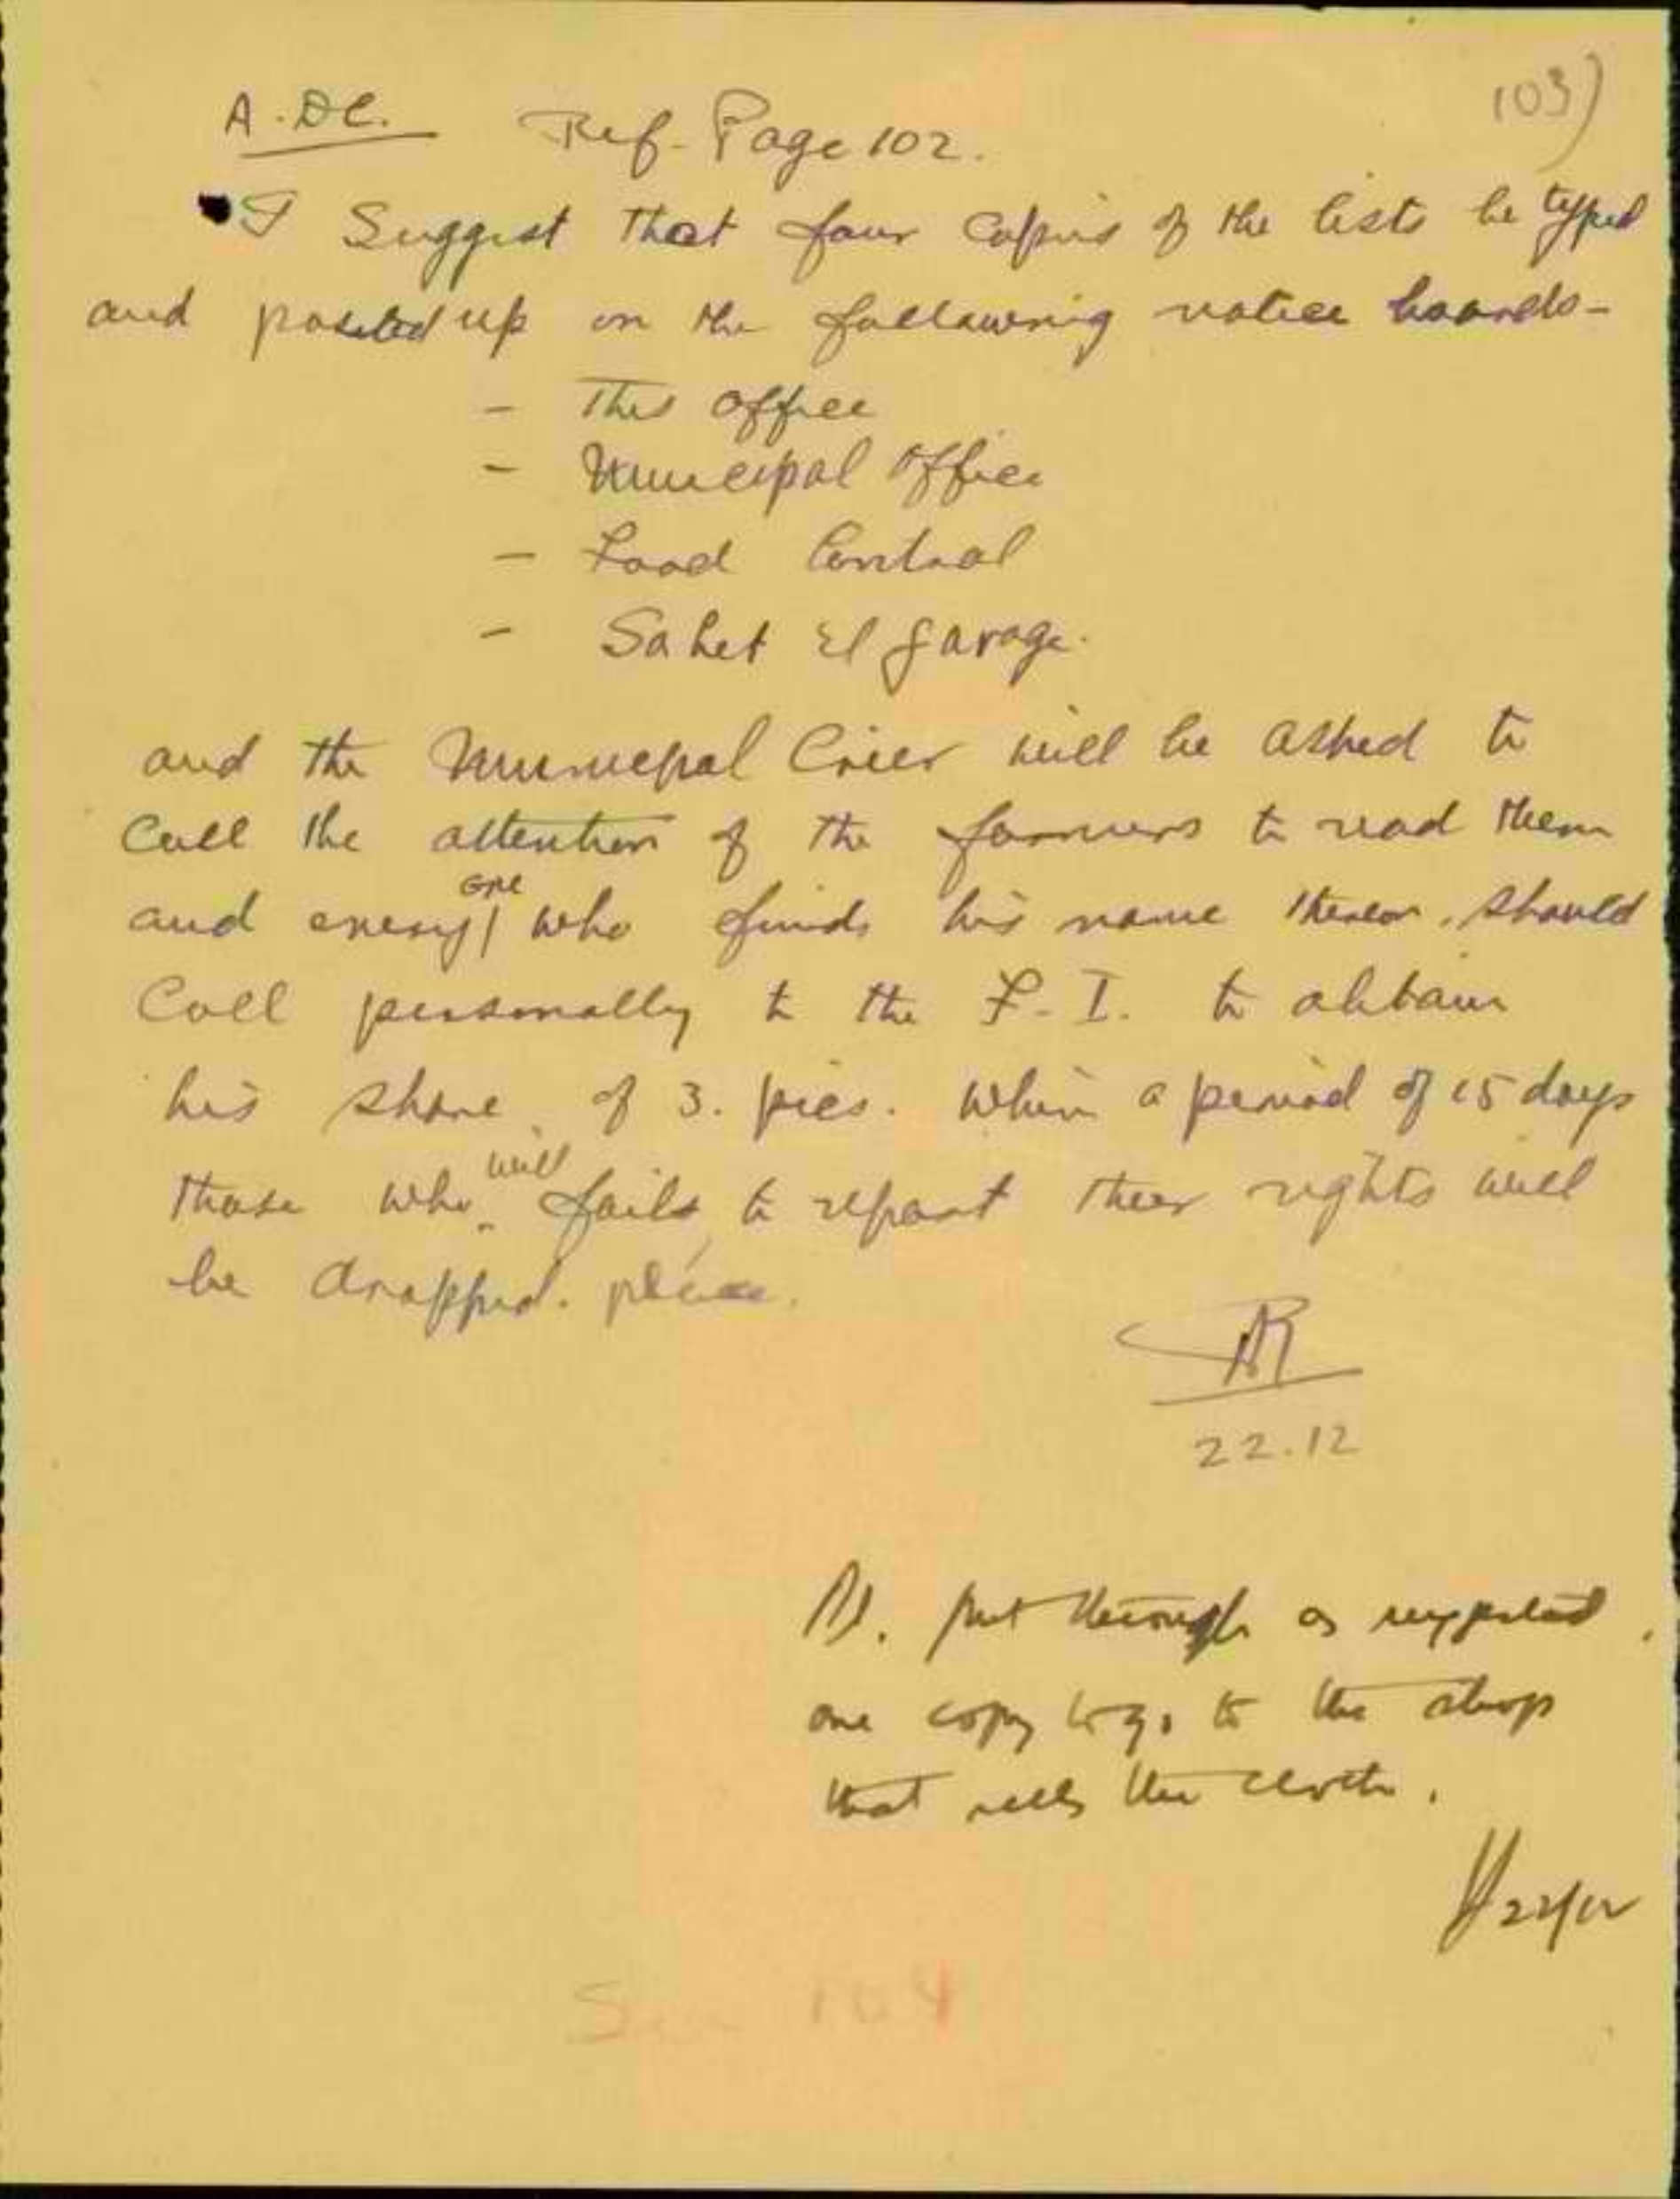 103)
A.DC. Ref- Page 102.
I Suggest that four copies of the lists be typed
and posted up on the following notice boards-
- This office
- Municipal office
- Food Control
- Sahet El Garage.
and the Municipal Crier will be asked to
Call the attention of the farmers to read them
and every one who finds his name thereon, should
Call personally to the F.I. to obtain
his share of 3. pics. whin a period of 15 days
those who will fails to report their rights will
be dropped. please.
22.12
put through as suggested,
one copy to go to the shop
that sells the cloth.
22/12
See 104